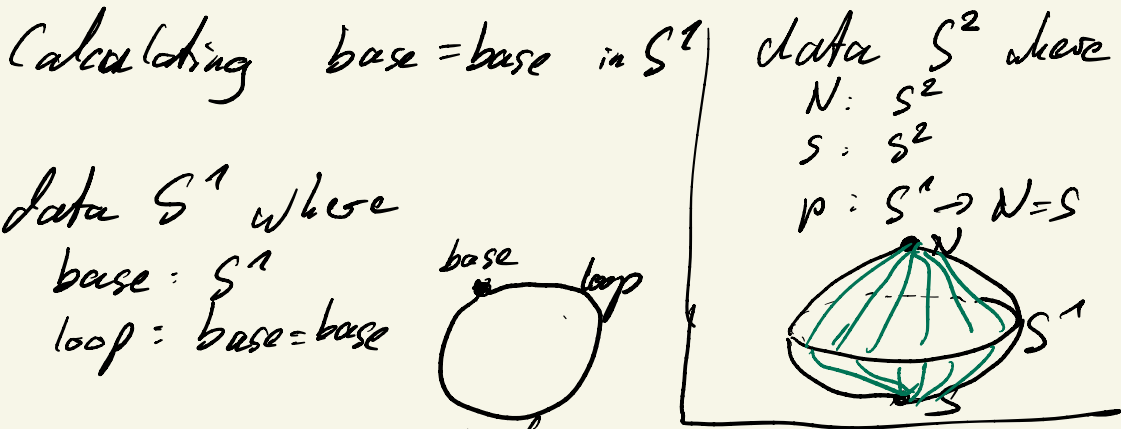 Calculating base = base in S¹
data S¹ where
base : S¹
loop : base = base
base
loop
data S² where
N : S²
S : S²
p : S¹ → N = S
N
S¹
S